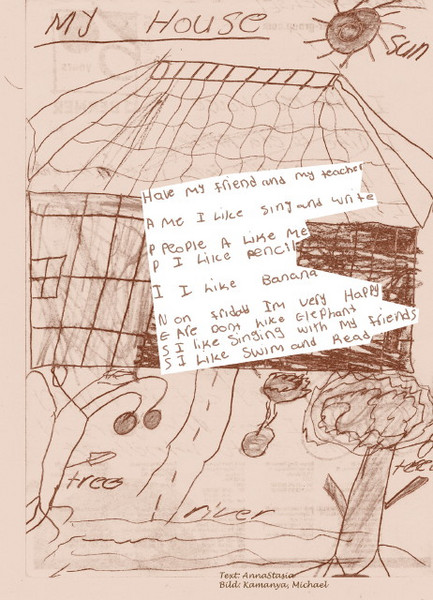 MY HOUSE
sun
Have my friend and my teacher
A Me I Like Sing and write
P People A Like Me
P I Like Pencil
I I Like Banana
N on friday Im very Happy
E Are Dont Like Elephant
S I like Singing with My friends
S I Like Swim and Read
tree
tree
river
Text: AnnaStasia
Bild: Kamanya, Michael